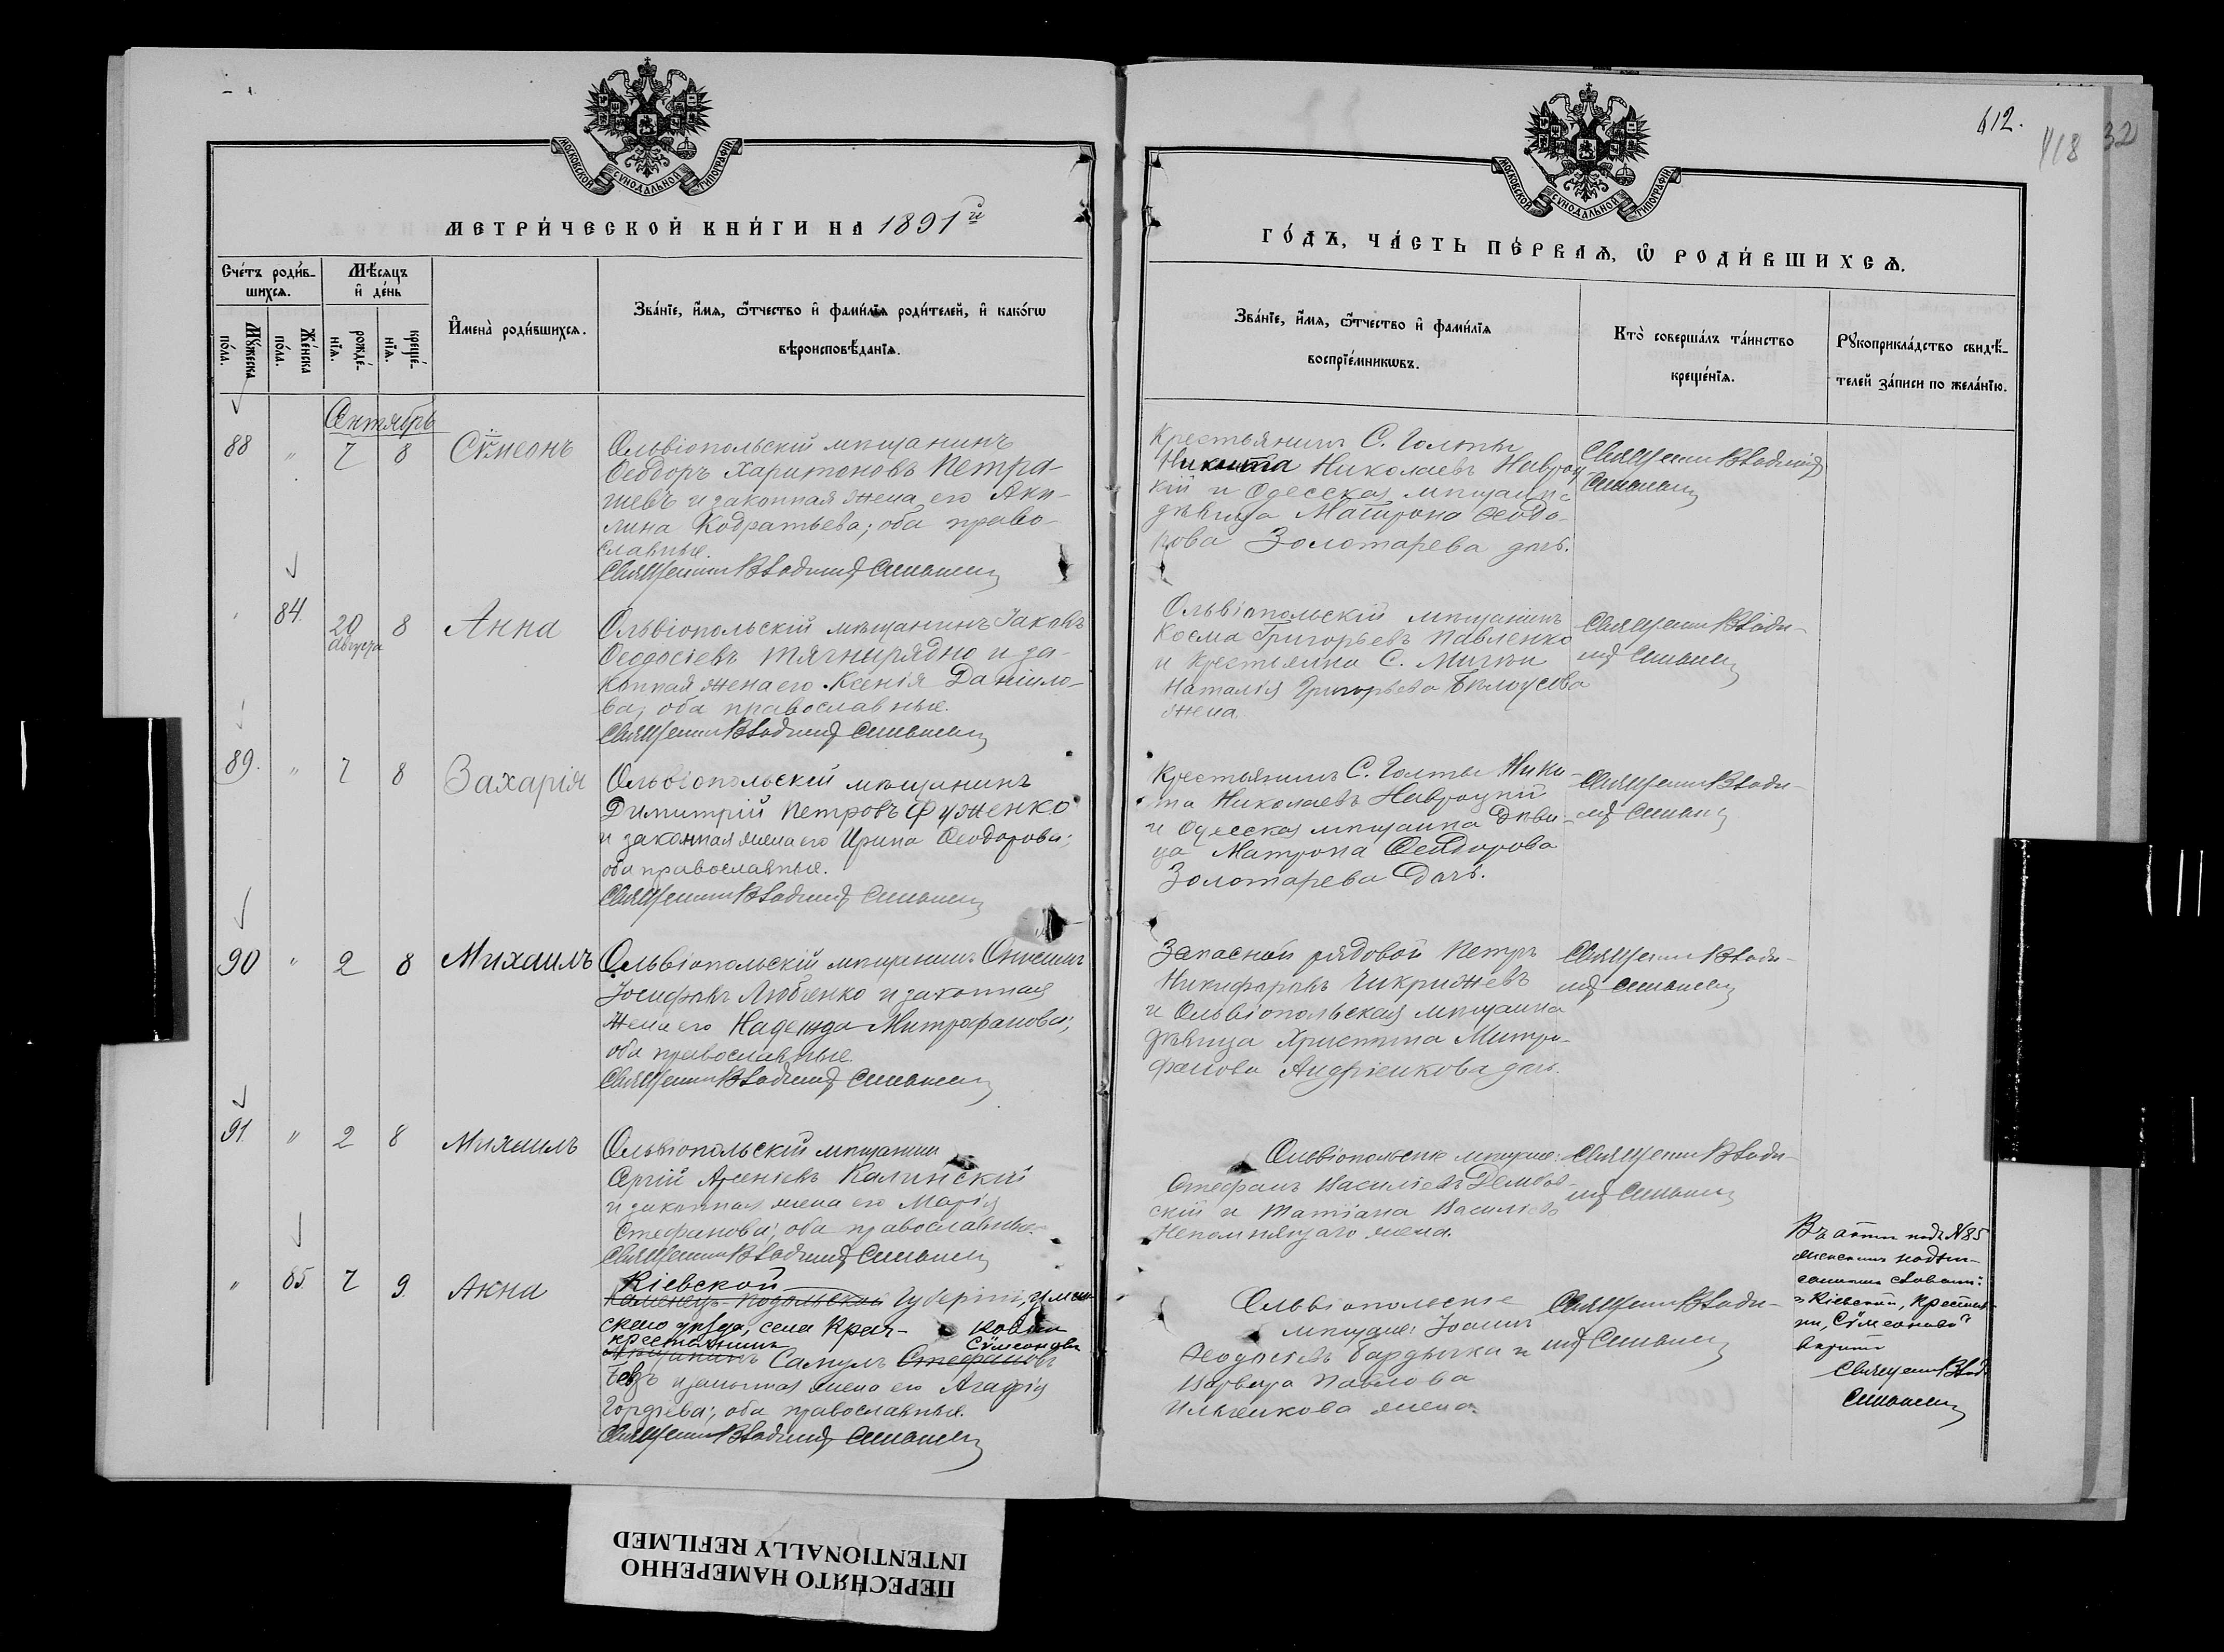 МОСКОВСКОЙ СѴНОДАЛЬНОЙ ТИПОГРАФІИ
МЕТРИ́ЧЕСКОЙ КНИ́ГИ НА 1891й
Сче́тъ роди́в-
шихсѧ.
Мѣ́сѧцъ
и҆ де́нь
Мꙋ́жеска
по́ла.
Же́нска
по́ла.
рожде́-
нїѧ.
креще́-
нїѧ.
И҆мена̀ роди́вшихсѧ.
Зва́нїе, и҆́мѧ, ѻ҆́тчество и҆ фами́лїѧ роди́телей, и҆ како́гѡ
вѣроисповѣ́данїѧ.
Октябрь
88 " 7 8 Сѵмеонъ
Ольвіопольскій мѣщанинъ
Ѳеодоръ Харитоновъ Петра-
шевъ и законная жена его Аки-
лина Кодратьева; оба право-
славные.
Священник Владимір
84. 20 8 Анна
августа
Ольвіопольскій мѣщанинъ Іаковъ
Ѳеодосіевъ Тягнирядно и за-
конная жена его Ксенія Даніило-
ва; оба православные.
Священник Владимір
89. " 7 8 Захарія
Ольвіопольскій мѣщанинъ
Димитрій Петровъ Фуженко
и законная жена его Ирина Ѳеодорова;
оба православные.
Священник Владимір
90 " 2 8 Михаилъ
Ольвіопольскій мѣщанинъ Онисимъ
Іосифовъ Любченко и законная
жена его Надежда Митрофанова;
оба православные.
Священник Владимір
91 " 2 8 Михаилъ
Ольвіопольскій мѣщанин
Сергій Арсеніевъ Калинскій
и законная жена его Марія
Стефанова; оба православные.
Священник Владимір
" 85. 7 9. Анна
Кіевской
Каменец-Подольской Губерніи, Уман-
скаго уѣзда, села Крач- ковки
крестьянинъ Сѵмеоновъ
мѣщанинъ Самуил Стефановъ
и законная жена его Агафія
Гордѣева; оба православные.
Священник Владимір
612.
418
32
МОСКОВСКОЙ СѴНОДАЛЬНОЙ ТИПОГРАФІИ
ГО́ДЪ, ЧА́СТЬ ПЕ́РВАѦ, Ѡ҆ РОДИ́ВШИХСѦ.
Зва́нїе, и҆́мѧ, ѻ҆́тчество и҆ фами́лїѧ
воспрїе́мникѡвъ.
Кто̀ соверша́лъ та́инство
креще́нїѧ.
Рꙋкоприкла́дство свидѣ́-
телей за́писи по жела́нїю.
Крестьянинъ С. Голты
Никита Николаевъ Навроц
кій и Одесская мѣщанка
дѣвица Матрона Ѳеодо-
рова Золотарева дочь.
Священник Владимір
Ольвіопольскій мѣщанинъ
Косма Григорьевъ Павленко
и крестьянка С. Мигѣи
Наталія Григорьева Бѣлоусова
жена.
Священник Влади-
мір
Крестьянинъ С. Голты Ники-
та Николаевъ Навроцкій
и Одесская мѣщанка дѣви-
ца Матрона Ѳеодорова
Золотарева дочь.
Священник Влади-
мір
Запасной рядовой Петръ
Никифоровъ Чикрижевъ
и Ольвіопольская мѣщанка
дѣвица Христина Митро-
фанова Андріенкова дочь.
Священник Влади-
мір
Ольвіопольскіе мѣщане:
Стефанъ Василіевъ Дембов-
скій и Татіана Василіева
Непомнящаго жена.
Священник Влади-
мір
Ольвіопольскіе
мѣщане: Іоаннъ
Ѳеодосіевъ Бардычка и
Варвара Павлова
Ильченкова жена.
Священник Влади-
мір
Въ актѣ подъ №85
женскимъ надпи-
санными словами:
„Кіевской, крестьян-
нъ, Сѵмеоновъ"
вѣрить
Священник Влад
ПЕРЕСНЯТО НАМЕРЕННО
INTENTIONALLY REFILMED